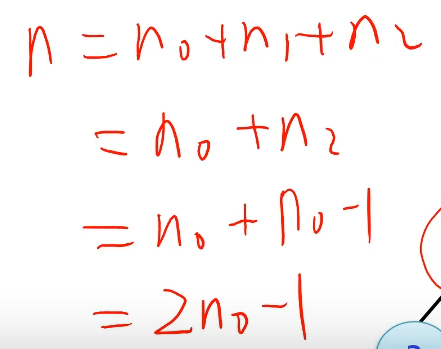 n = n₀ + n₁ + n₂
= n₀ + n₂
= n₀ + n₀ - 1
= 2n₀ - 1